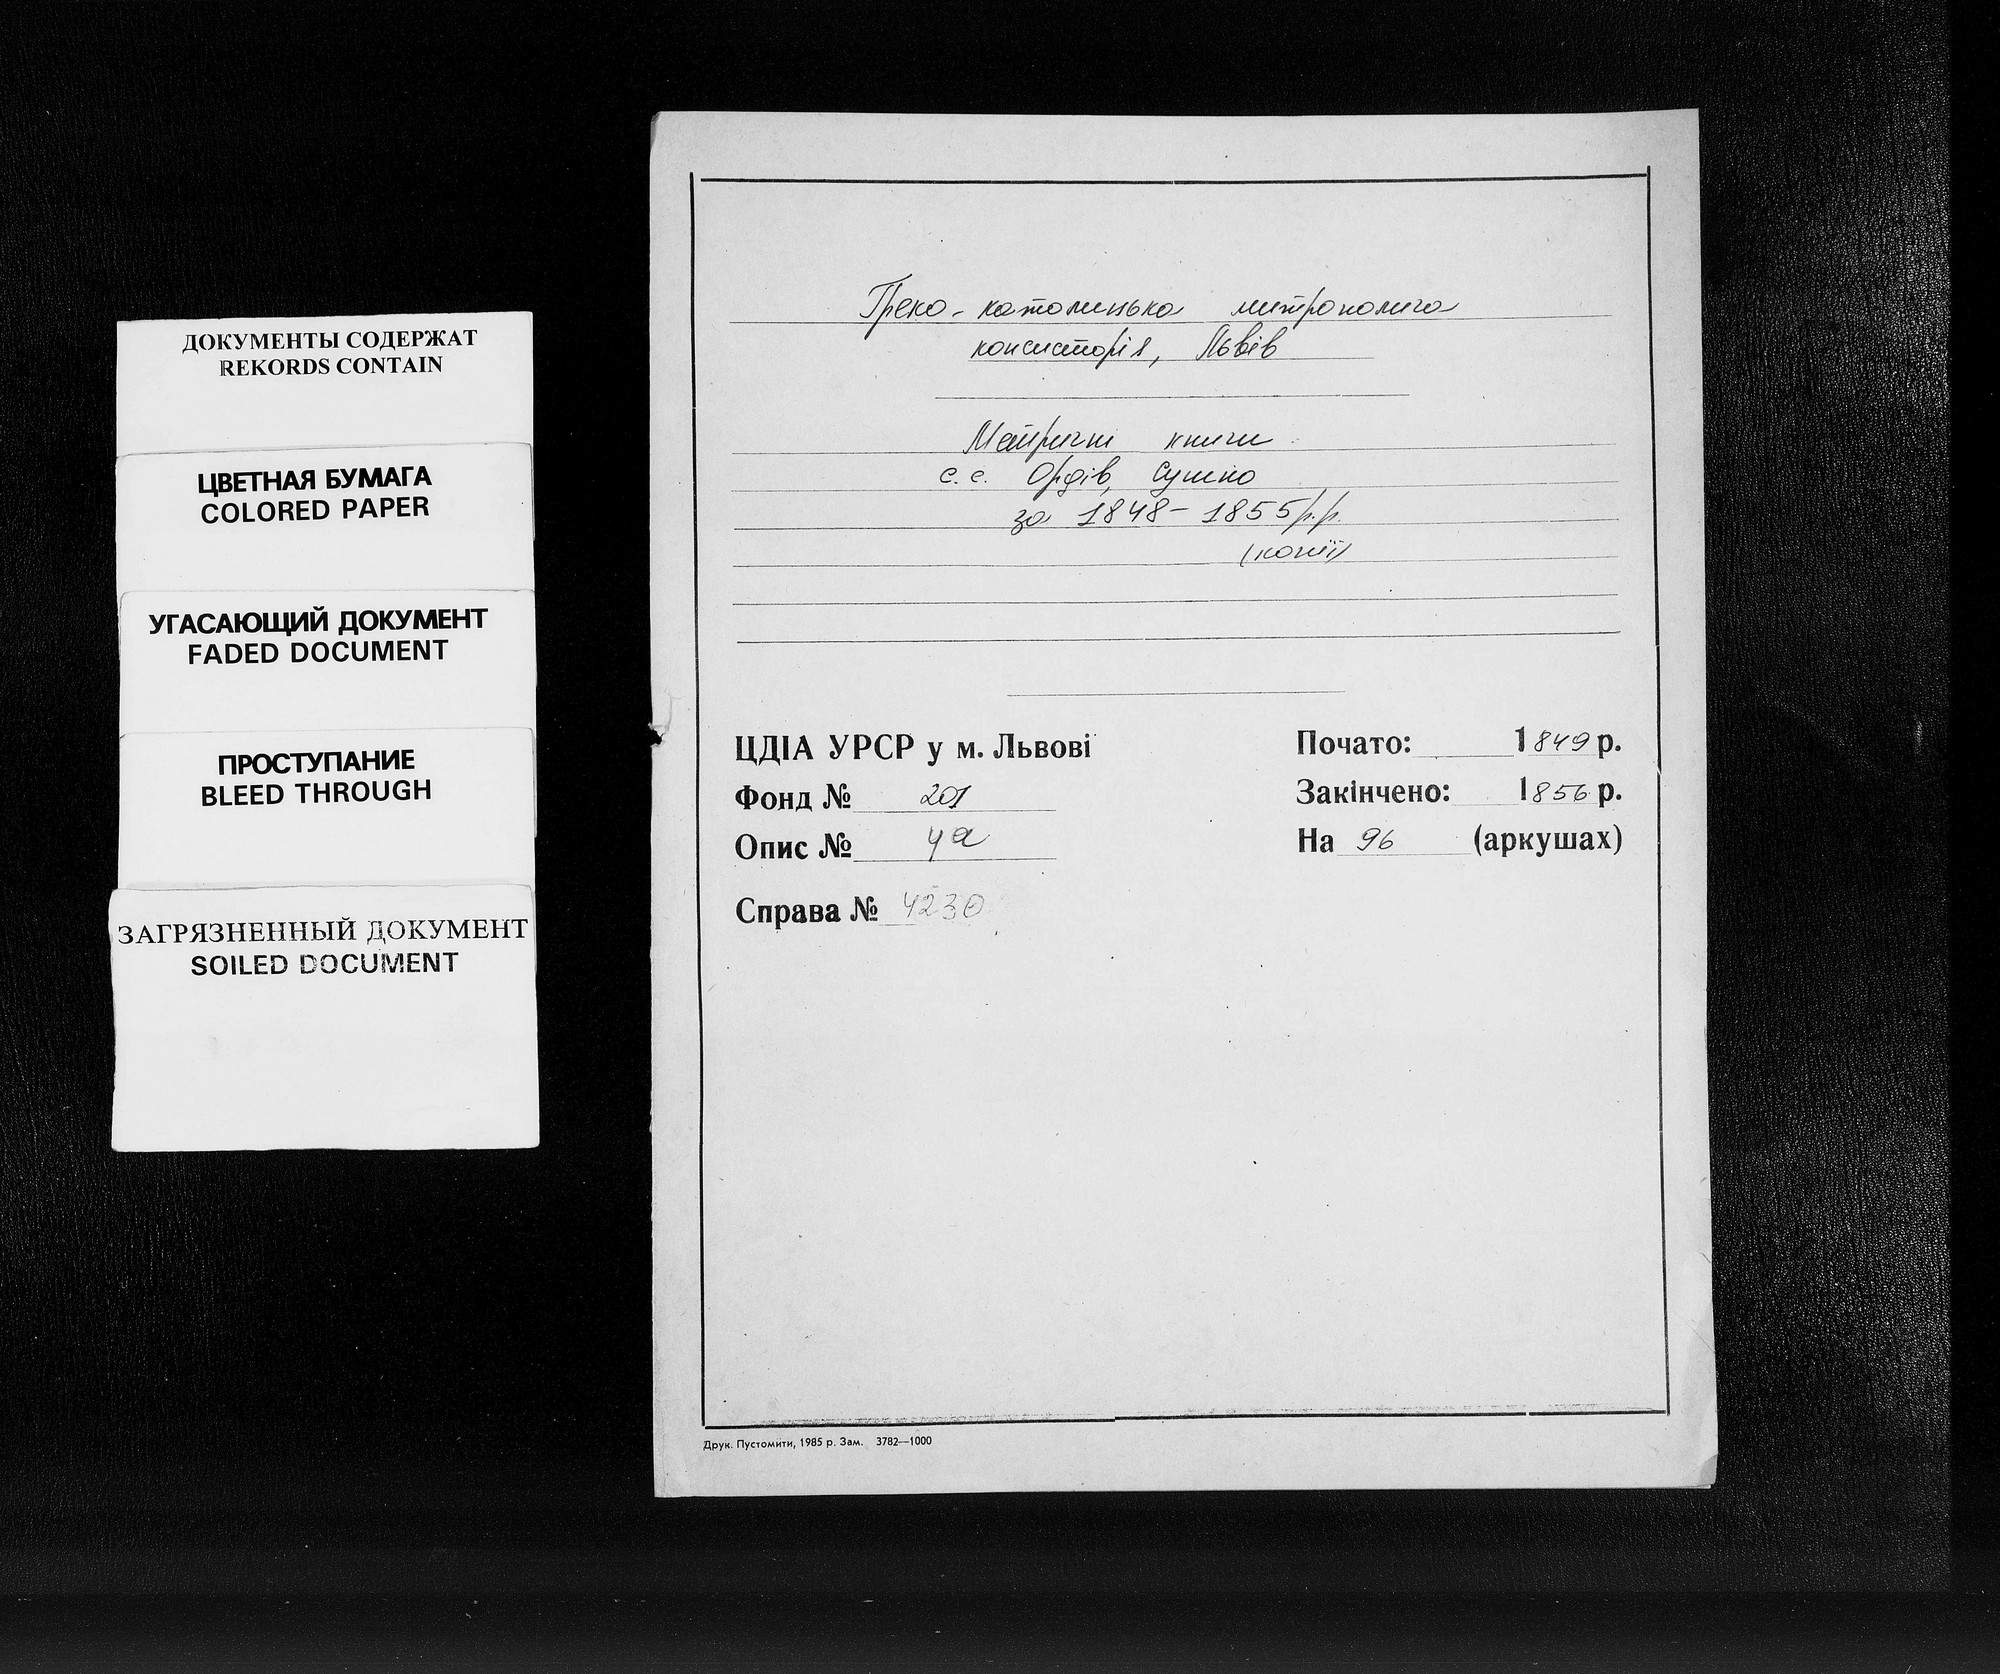 ДОКУМЕНТЫ СОДЕРЖАТ
REKORDS CONTAIN
ЦВЕТНАЯ БУМАГА
COLORED PAPER
УГАСАЮЩИЙ ДОКУМЕНТ
FADED DOCUMENT
ПРОСТУПАНИЕ
BLEED THROUGH
ЗАГРЯЗНЕННЫЙ ДОКУМЕНТ
SOILED DOCUMENT
Греко-католицька митрополича
консисторія, Львів
Метричні книги
с.с. Ордів, Сушно
за 1848-1855р.р.
(копії)
ЦДІА УРСР у м. Львові
Фонд № 201
Опис № 4а
Справа № 4230
Почато: 1849 р.
Закінчено: 1856 р.
На 96 (аркушах)
Друк. Пустомити, 1985 р. Зам. 3782—1000